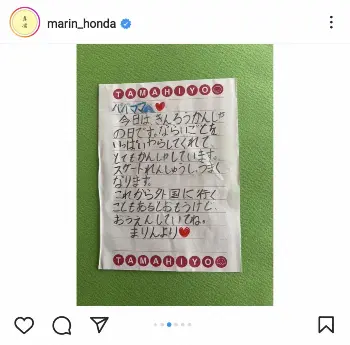 marin_honda
TAMAHIYO
パパ、ママへ❤
今日は きんろうかんしゃ
の日です。ならいごとを
いっぱいわらしてくれて
とてもかんしゃしています。
スケートれんしゅうし、つよく
なります。
これから外国に行く
こともあるとおもうけど、
おうえんしていてね。
まりんより❤
TAMAHIYO